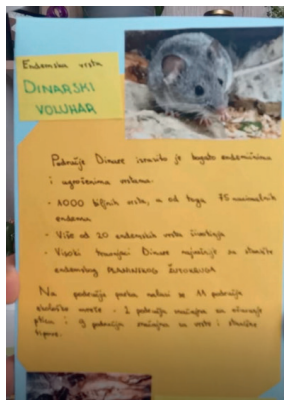 Endemska vrsta
DINARSKI
VOLUHAR
Područje Dinare izrazito je bogato endemičnim
i ugroženim vrstama:
- 1000 biljnih vrsta, a od toga 75
endema
- Više od 20 endemskih vrsta životinja
- Visoki travnjaci Dinare najvažnije su stanište
endemskog PLANINSKOG ŽUTOKRUGA
Na području parka nalazi se 11 područja
ekološke mreže - 2 područja značajna za očuvanje
ptica i 9 područja značajna za vrste i stanišne
tipove.